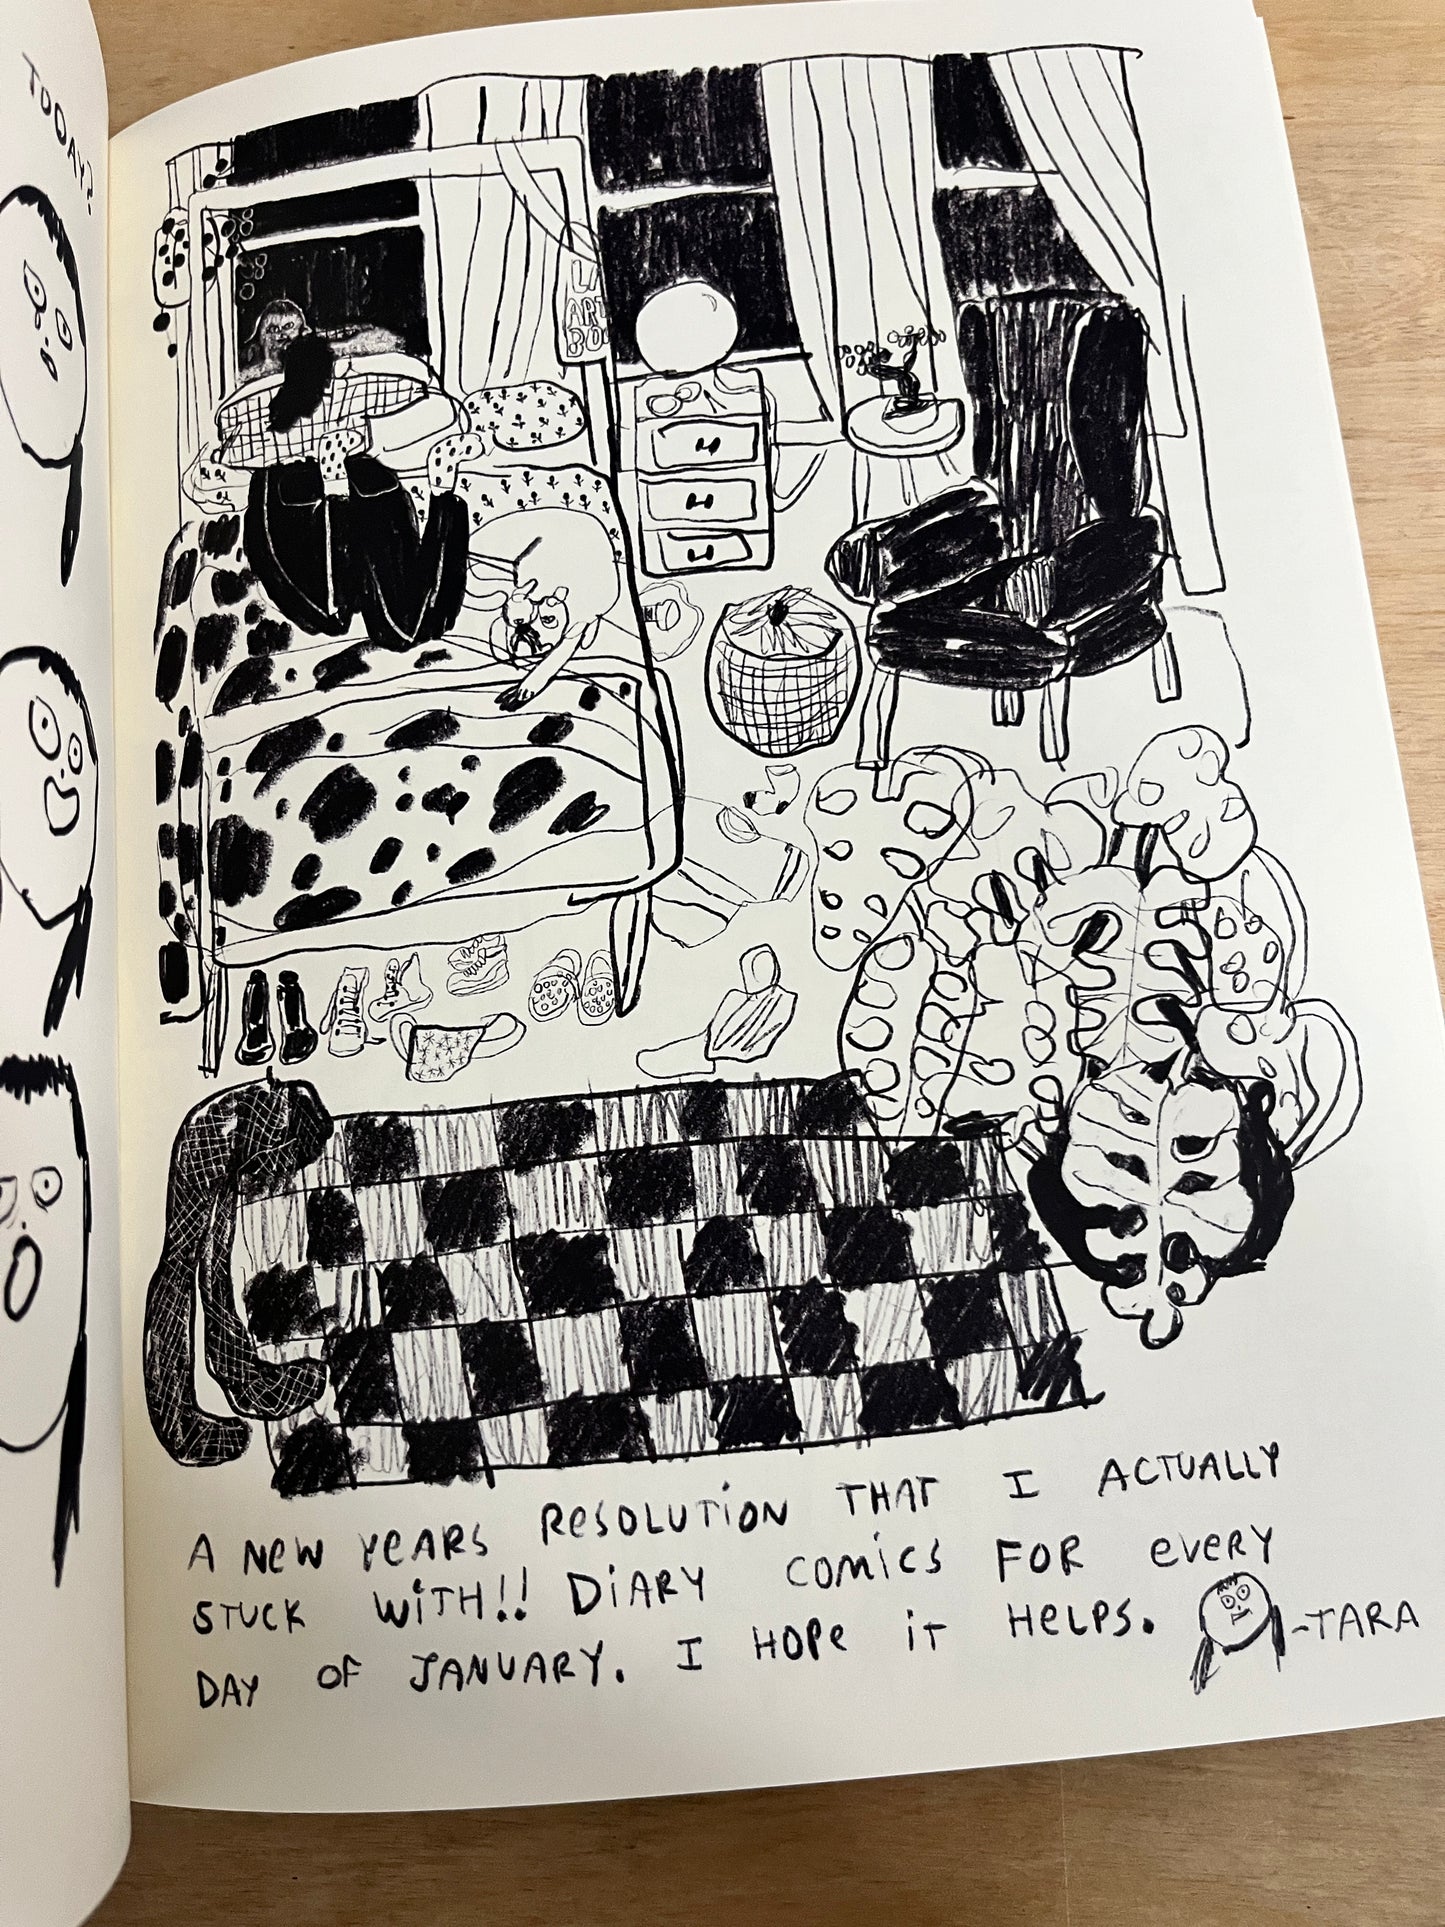 TODAY?
LA
ART
BOO
A NEW YEARS RESOLUTION THAT I ACTUALLY
STUCK WITH!! DIARY COMICS FOR EVERY
DAY OF JANUARY. I HOPE IT HELPS. -TARA